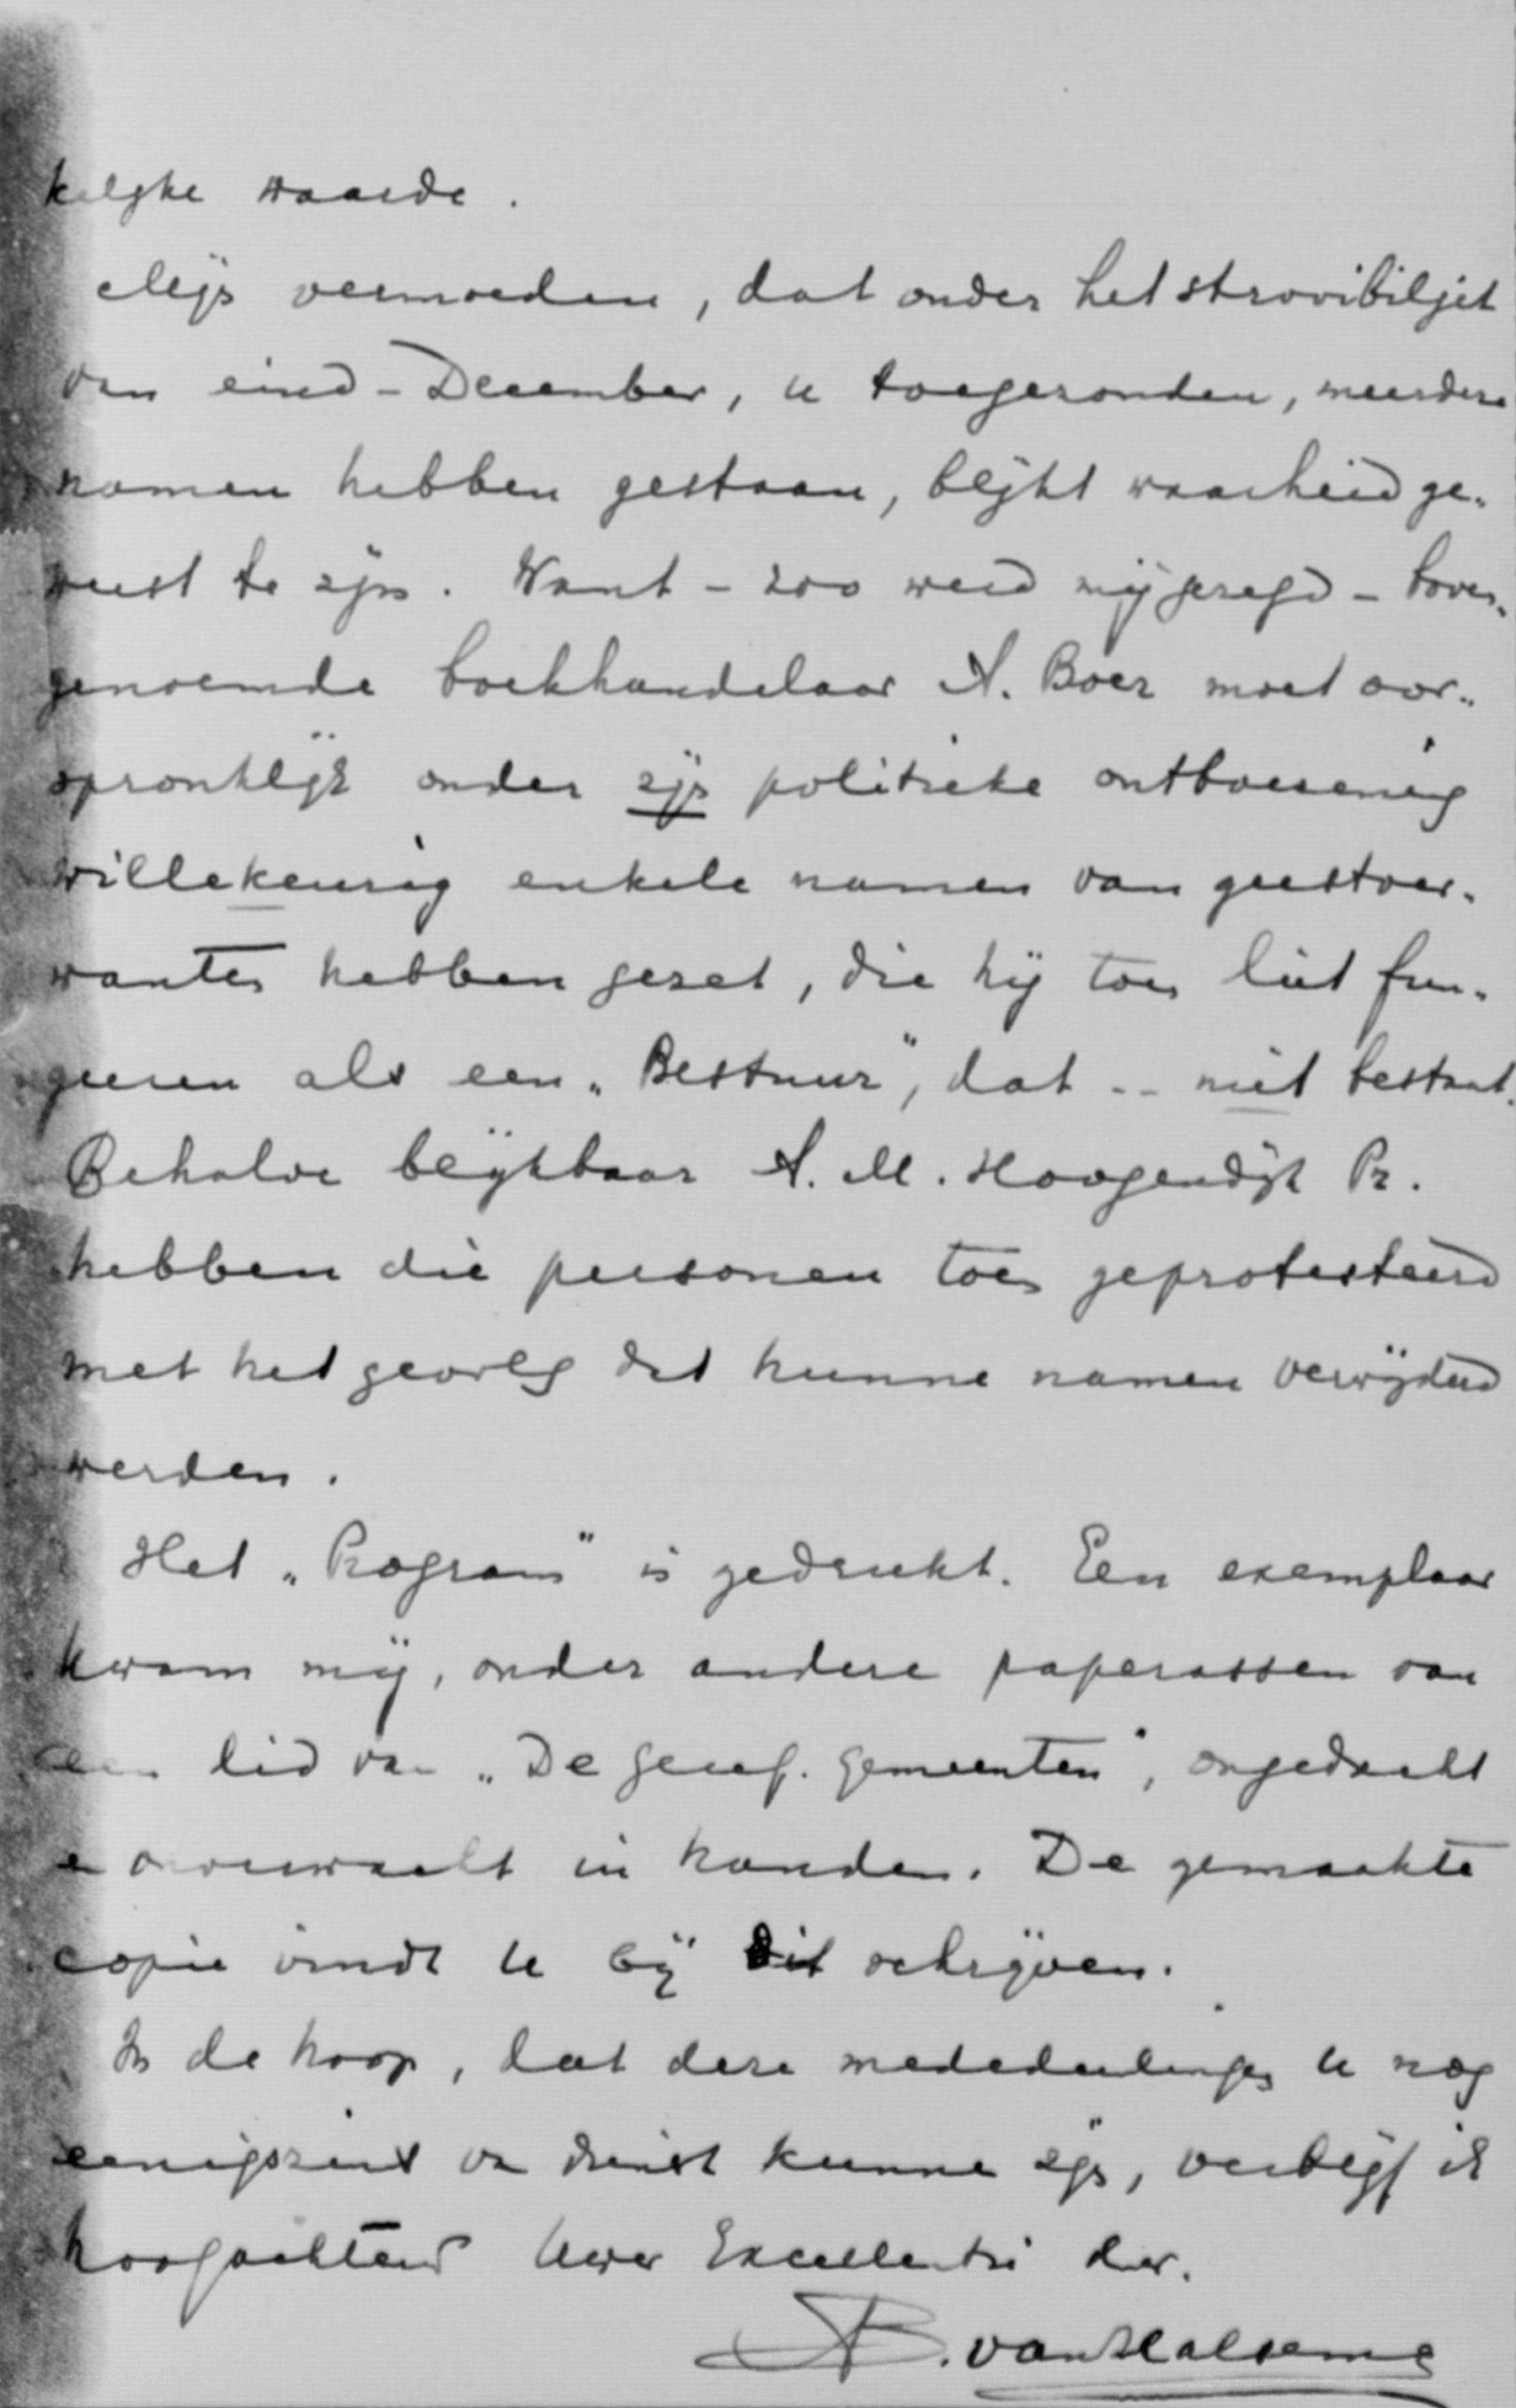 kelijke waarde.
Mijn vermoeden, dat onder het strooibiljet
van eind-December, U toegezonden, meerdere
namen hebben gestaan, blijkt waarheid ge-
weest te zijn. Want - zoo werd mij gezegd - boven-
genoemde boekhandelaar A. Boer moet oor-
spronklijk onder zijn politieke ontboezeming
willekeurig enkele namen van geestver-
wanten hebben gezet, die hij toen liet fun-
geeren als een „Bestuur", dat -- niet bestaat.
Behalve blijkbaar A. M. Hoogendijk Pz.
hebben die personen toen geprotesteerd
met het gevolg dat hunne namen verwijderd
werden.
Het „Program" is gedrukt. Een exemplaar
kwam mij, onder andere paperassen van
een lid van „De geref. gemeenten", ongedacht
en onverwacht in handen. De gemaakte
copie vindt U bij dit schrijven.
In de hoop, dat deze mededeelingen U nog
eenigszins van dienst kunnen zijn, verblijf ik
hoogachtend Uwer Excellentie dw.
B. van Halsema